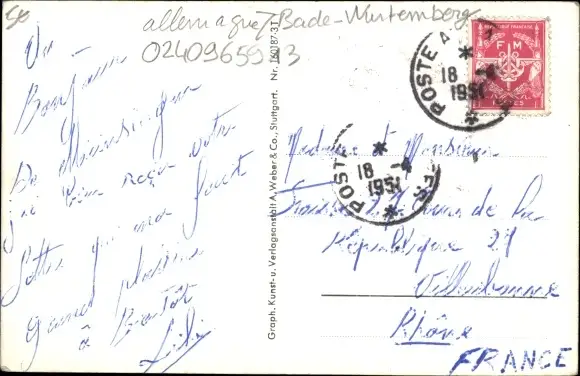 allemagne / Bade-Wurtemberg
0240965913
Un
Bonjour
De Munsingen
j'ai bien reçu votre
lettre qui m'a faut
grand plaisir
à Bientôt
Graph. Kunst- u. Verlagsanstalt A. Weber & Co., Stuttgart. Nr. 160187-3T
FM
POSTE A
18 -4
1951
POSTE
18 -4
1951
Madame et Monsieur
Cours de la
République 27
Villeurbanne
Rhône
FRANCE